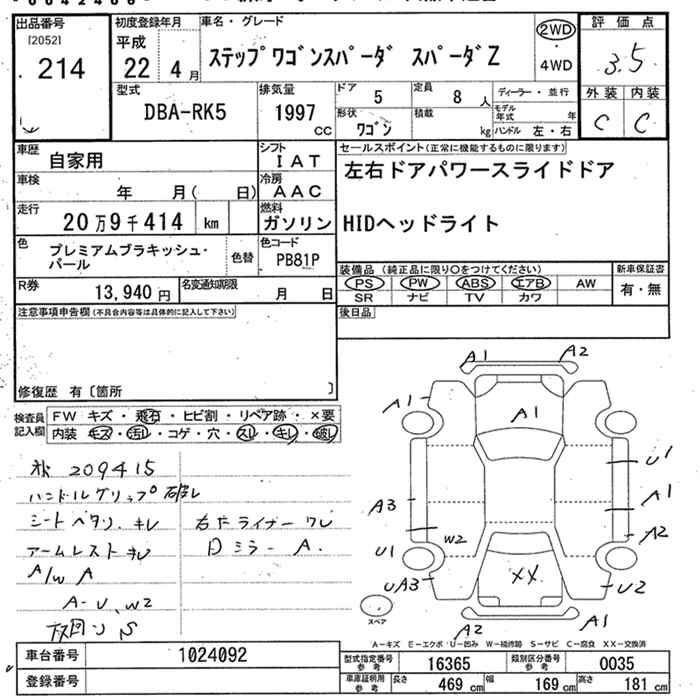 出品番号
[2052]
214
初度登録年月
平成
22 4月
車名・グレード
ステップワゴンスパーダ スパーダZ
2WD
・
4WD
評価点
3.5
外装 内装
C C
型式
DBA-RK5
排気量
1997 cc
ドア
5
定員
8 人
形状
ワゴン
積載
kg
ディーラー・並行
モデル年式 年
ハンドル 左・右
車歴
自家用
シフト
IAT
車検
年 月( 日)
冷房
AAC
走行
20万9千414 km
燃料
ガソリン
色
プレミアムブラキッシュ・
パール
色替
色コード
PB81P
R券
13,940円
名変通知期限
月 日
セールスポイント(正常に機能するものに限ります)
左右ドアパワースライドドア
HIDヘッドライト
装備品(純正品に限り○をつけてください)
新車保証書
PS PW ABS エアB AW
SR ナビ TV カワ
有・無
注意事項申告欄(不具合内容等は具体的に記入して下さい)
後日品
修復歴 有〔箇所 〕
検査員
記入欄
FW キズ・飛石・ヒビ割・リペア跡・×要
内装 キズ・汚れ・コゲ・穴・スレ・キレ・破れ
209415
ハンドルグリップ破レ
シートヘタリ.キレ
アームレストキレ
A/W A
A-U、W2
右F ライナーワレ
Dミラー A.
A1 A2
A1
A1
U1
A3
A1
A2
W2
U1
UA3
XX
U2
A2
A1
スペア
A-キズ E-エクボ U-凹み W-補修跡 S-サビ C-腐食 XX-交換済
車台番号 1024092
登録番号
型式指定番号
参考
16365
類別区分番号
参考
0035
車庫証明用
参考
長さ 469 cm
幅 169 cm
高さ 181 cm